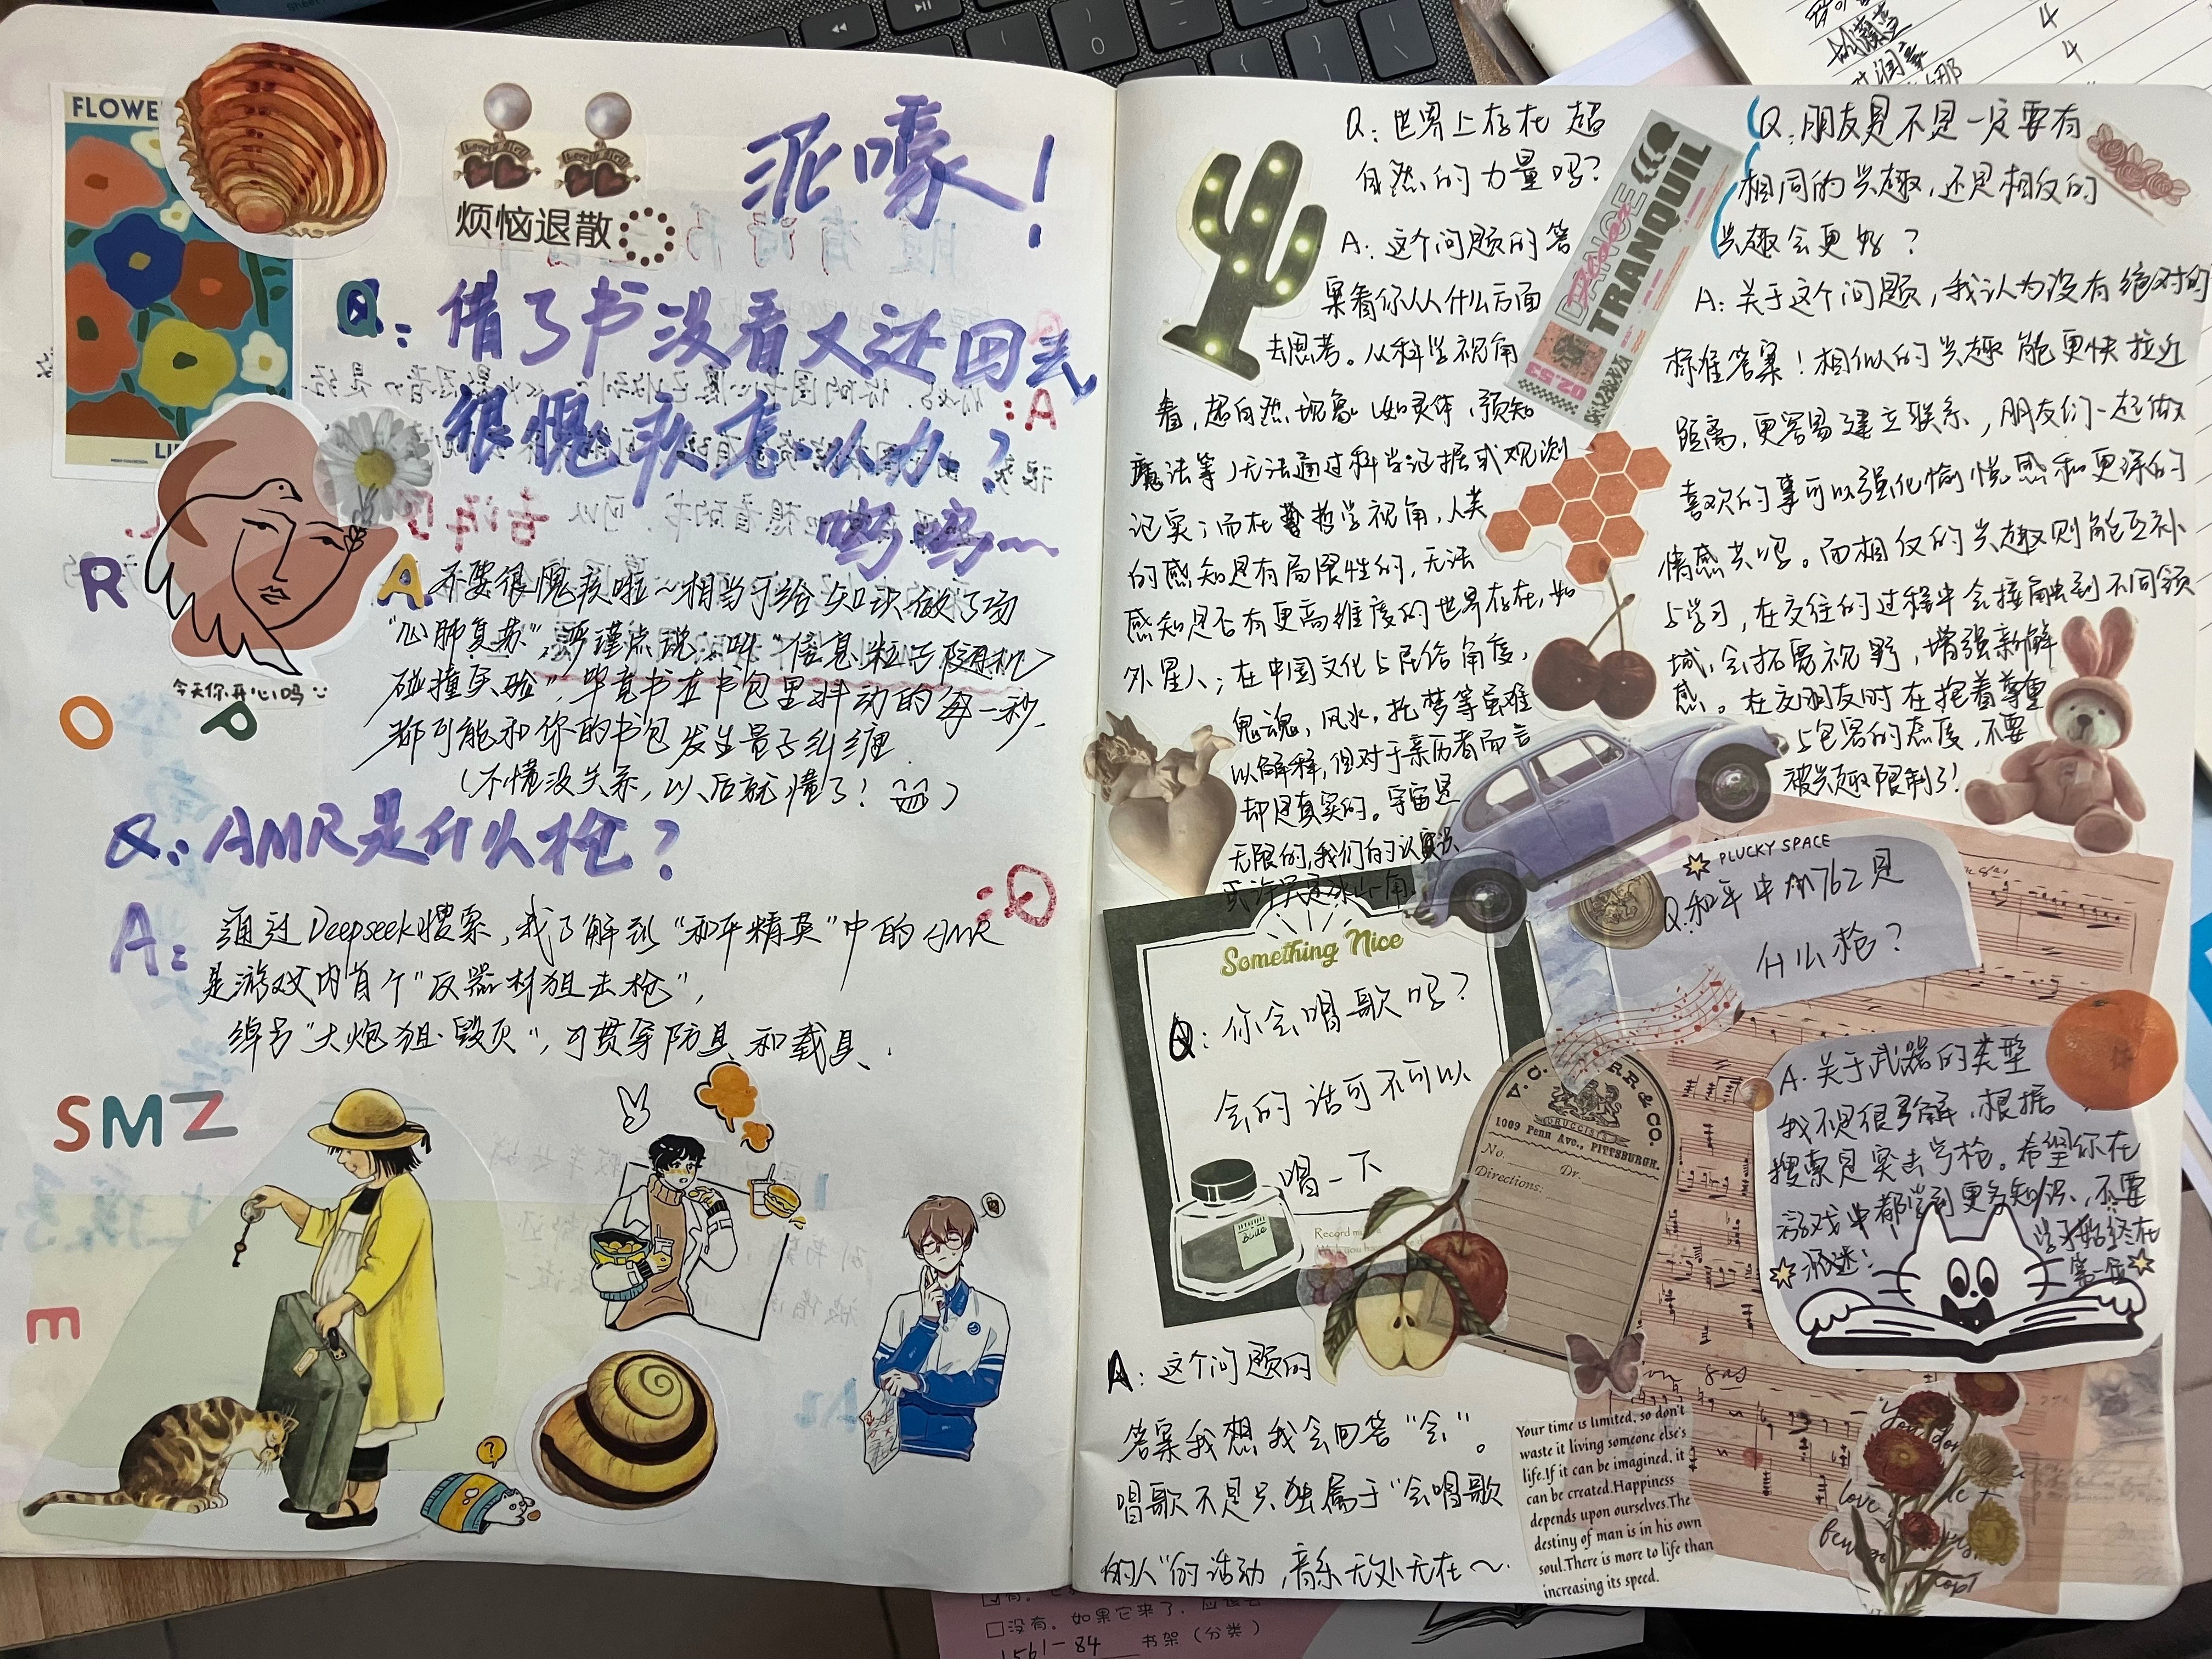 FLOWE
LI
烦恼退散
泥嚎！
Q：借了书没看又还回去
很愧疚怎么办？
呜呜~
R
O
P
今天你开心吗
A.不要很愧疚啦~相当于给知识做了场
“心肺复苏”，严谨点说，叫“信息粒子随机
碰撞实验”，毕竟书在书包里抖动的每一秒
都可能和你的书包发生量子纠缠
（不懂没关系，以后就懂了！）
Q：AMR是什么枪？
A：通过Deepseek搜索，我了解到“和平精英”中的AMR
是游戏内首个“反器材狙击枪”，
绰号“大炮狙·毁灭”，可贯穿防具和载具.
SMZ
E
Q：世界上存在超
自然的力量吗？
A：这个问题的答
案看你从什么方面
去思考。从科学视角
看，超自然现象（如灵体，预知
魔法等）无法通过科学证据或观测
记实；而在哲学视角，人类
的感知是有局限性的，无法
感知是否有更高维度的世界存在，如
外星人；在中国文化与民俗角度，
鬼魂，风水，托梦等虽难
以解释，但对于亲历者而言
却是真实的。宇宙是
无限的，我们的认识
或许只是冰山一角。
DANCE
TRANQUIL
02.53
Q：朋友是不是一定要有
相同的兴趣，还是相反的
兴趣会更好？
A：关于这个问题，我认为没有绝对的
标准答案！相似的兴趣能更快拉近
距离，更容易建立联系，朋友们一起做
喜欢的事可以强化愉悦感和更深的
情感共鸣。而相反的兴趣则能互补
与学习，在交往的过程中会接触到不同领
域，会拓宽视野，增强新鲜
感。在交朋友时在抱着尊重
与包容的态度，不要
被兴趣限制了！
PLUCKY SPACE
Q.和平中M762是
什么枪？
Something Nice
Q：你会唱歌吗？
会的话可不可以
唱一下
RR & CO.
DRUGGISTS
1009 Penn Ave., PITTSBURGH.
No.
Dr.
Directions:
A.关于武器的类型
我不是很了解，根据
搜索是突击步枪。希望你在
游戏中都学到更多知识，不要
沉迷！
学习始终在
第一位
A：这个问题的
答案我想我会回答“会”。
唱歌不是只独属于“会唱歌
的人”的活动，音乐无处无在~
Your time is limited, so don't
waste it living someone else's
life.If it can be imagined, it
can be created.Happiness
depends upon ourselves.The
destiny of man is in his own
soul.There is more to life than
increasing its speed.
没有。如果它来了，应该会
1561-84 书架（分类）